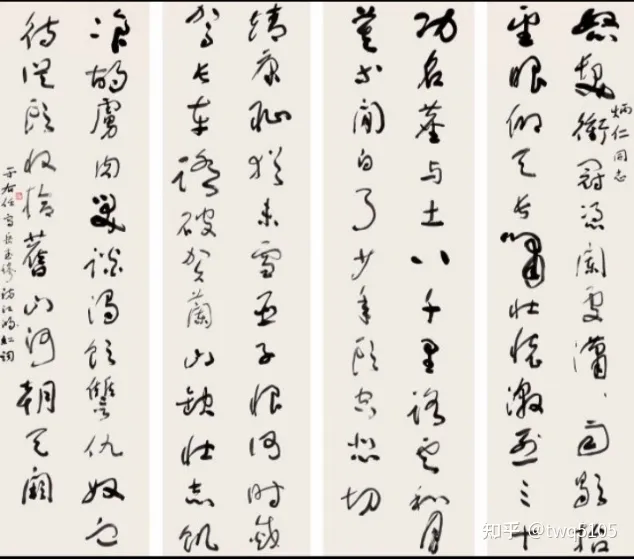 炳仁同志
怒髮衝冠憑闌處瀟、雨歇抬
望眼仰天長嘯壯懷激烈三十
功名塵与土八千里路雲和月
莫等閒白了少年頭空悲切
靖康恥猶未雪臣子恨何時滅
駕長車踏破賀蘭山缺壯志飢
飡胡虜肉笑談渴飲讐仇奴血
待從頭收拾舊山河朝天闕
于右任寫岳武穆滿江紅詞
知乎 @twq5105